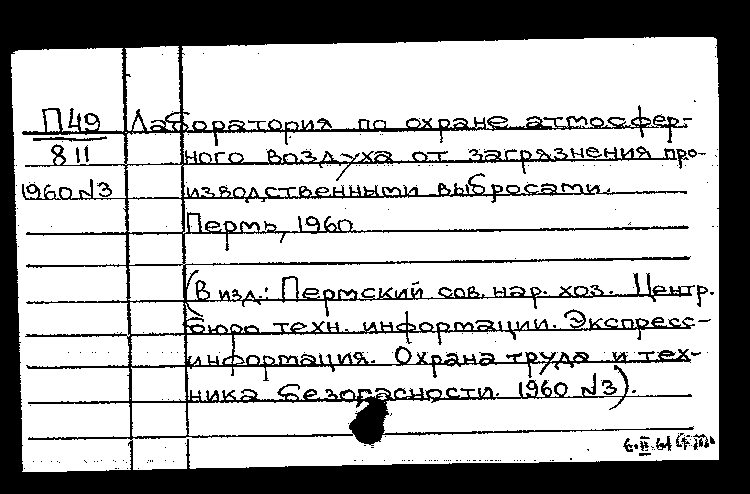 П49 Лаборатория по охране атмосфер-
811 ного воздуха от загрязнения про-
1960 N3 изводственными выбросами.
Пермь, 1960
(В изд.: Пермский сов. нар. хоз. Центр.
бюро техн. информации. Экспресс-
информация. Охрана труда и тех-
ника безопасности. 1960 N3).
6.II.61